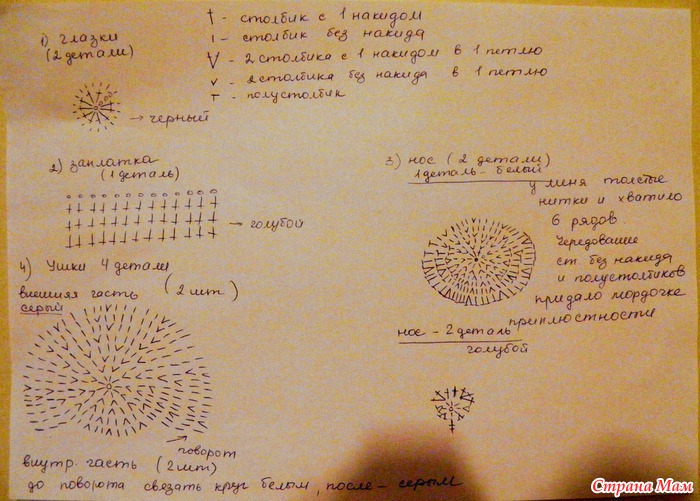 † - столбик с 1 накидом
ı - столбик без накида
V - 2 столбика с 1 накидом в 1 петлю
v - 2 столбика без накида в 1 петлю
т - полустолбик
1) Глазки
(2 детали)
→ черный
2) заплатка
(1 деталь)
→ голубой
3) нос (2 детали)
1 деталь - белый
у меня толстые
нитки и хватило
6 рядов.
Чередование
ст. без накида
и полустолбиков
придало мордочке
приплюстности
нос - 2 деталь
голубой
4) Ушки 4 детали
внешняя часть (2 шт.)
серый
→ поворот
внутр. часть (2 шт)
до поворота связать круг белым, после - серым
Страна Мам